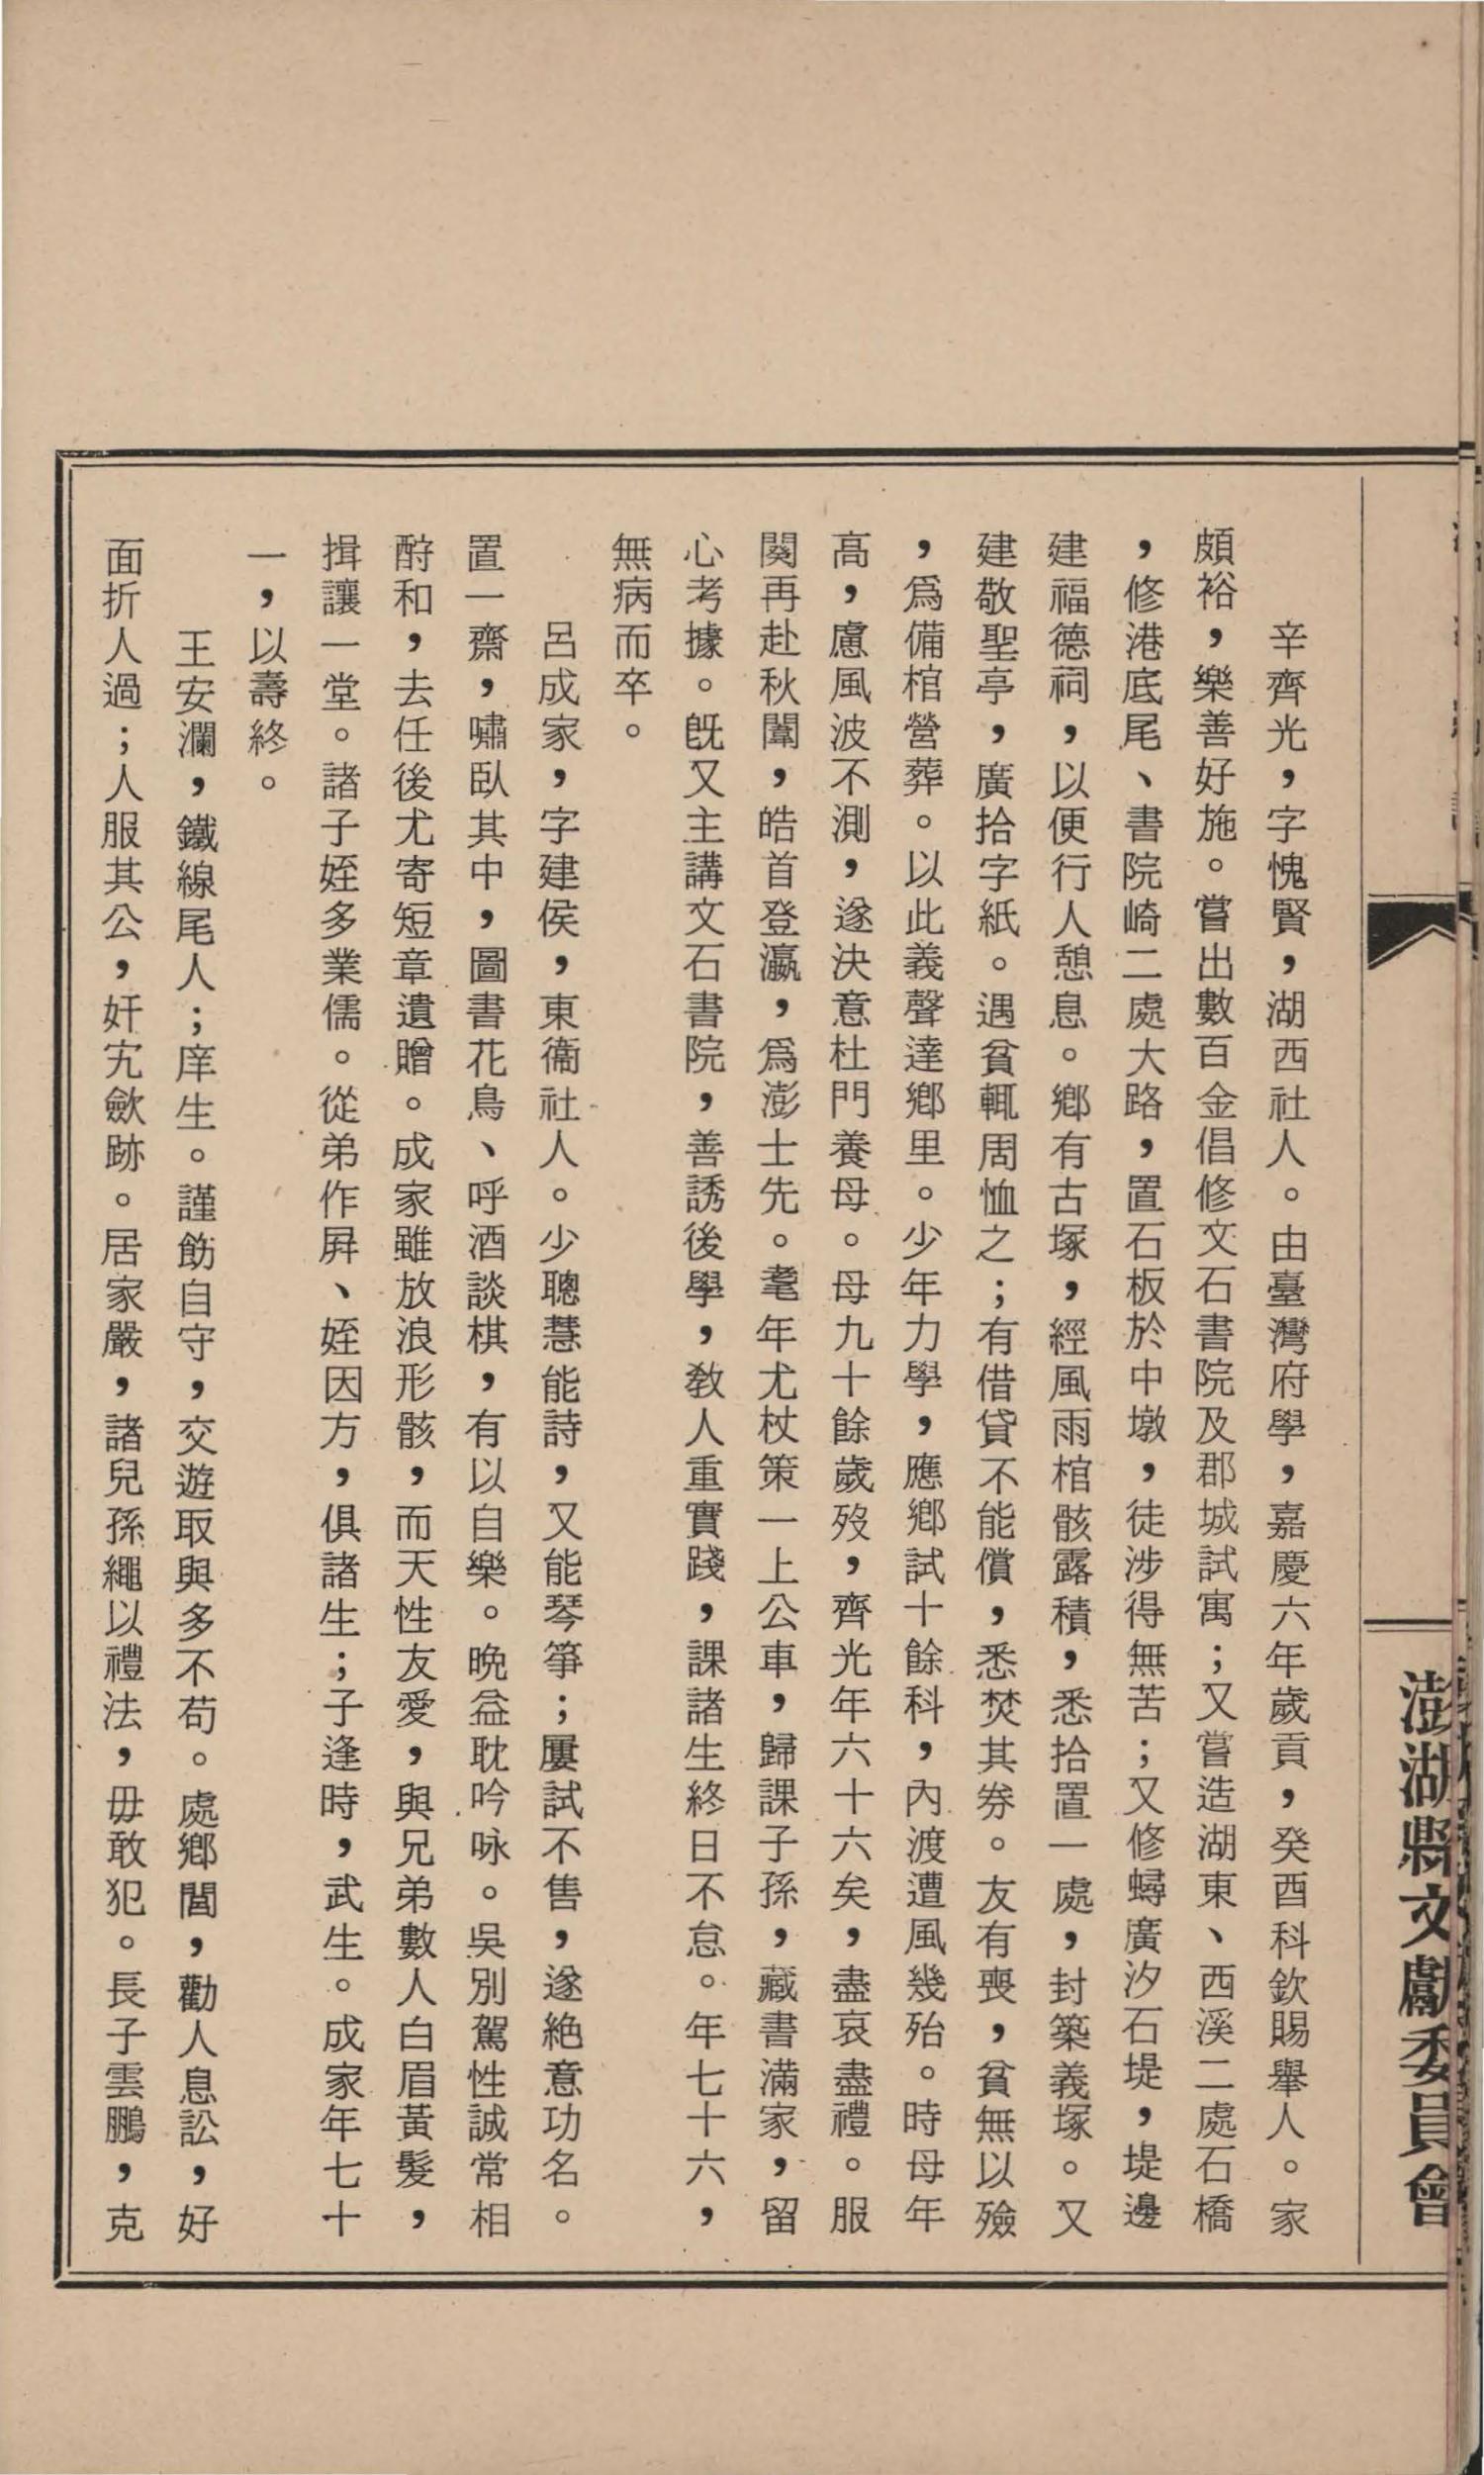 澎湖縣文獻委員會
辛齊光，字愧賢，湖西社人。由臺灣府學，嘉慶六年歲貢，癸酉科欽賜舉人。家
頗裕，樂善好施。嘗出數百金倡修文石書院及郡城試寓；又嘗造湖東、西溪二處石橋
，修港底尾、書院崎二處大路，置石板於中墩，徒涉得無苦；又修蟳廣汐石堤，堤邊
建福德祠，以便行人憩息。鄉有古塚，經風雨棺骸露積，悉拾置一處，封築義塚。又
建敬聖亭，廣拾字紙。遇貧輒周恤之；有借貸不能償，悉焚其券。友有喪，貧無以殮
，爲備棺營葬。以此義聲達鄉里。少年力學，應鄉試十餘科，內渡遭風幾殆。時母年
高，慮風波不測，遂決意杜門養母。母九十餘歲歿，齊光年六十六矣，盡哀盡禮。服
闋再赴秋闈，皓首登瀛，爲澎士先。耄年尤杖策一上公車，歸課子孫，藏書滿家，留
心考據。旣又主講文石書院，善誘後學，敎人重實踐，課諸生終日不怠。年七十六，
無病而卒。
呂成家，字建侯，東衞社人。少聰慧能詩，又能琴箏；屢試不售，遂絕意功名。
置一齋，嘯臥其中，圖書花鳥、呼酒談棋，有以自樂。晚益耽吟咏。吳別駕性誠常相
酧和，去任後尤寄短章遺贈。成家雖放浪形骸，而天性友愛，與兄弟數人白眉黃髮，
揖讓一堂。諸子姪多業儒。從弟作屛、姪因方，俱諸生；子逢時，武生。成家年七十
一，以壽終。
王安瀾，鐵線尾人；庠生。謹飭自守，交遊取與多不苟。處鄉閭，勸人息訟，好
面折人過；人服其公，奸宄歛跡。居家嚴，諸兒孫繩以禮法，毋敢犯。長子雲鵬，克